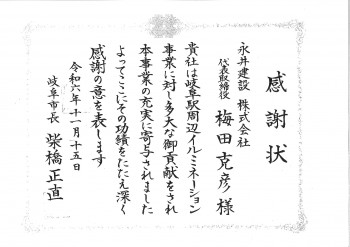 感謝状
永井建設 株式会社
代表取締役 梅田克彦 様
貴社は岐阜駅周辺イルミネーション
事業に対し多大な御貢献をされ
本事業の充実に寄与されました
よってここにその功績をたたえ深く
感謝の意を表します
令和六年十一月十五日
岐阜市長 柴橋正直